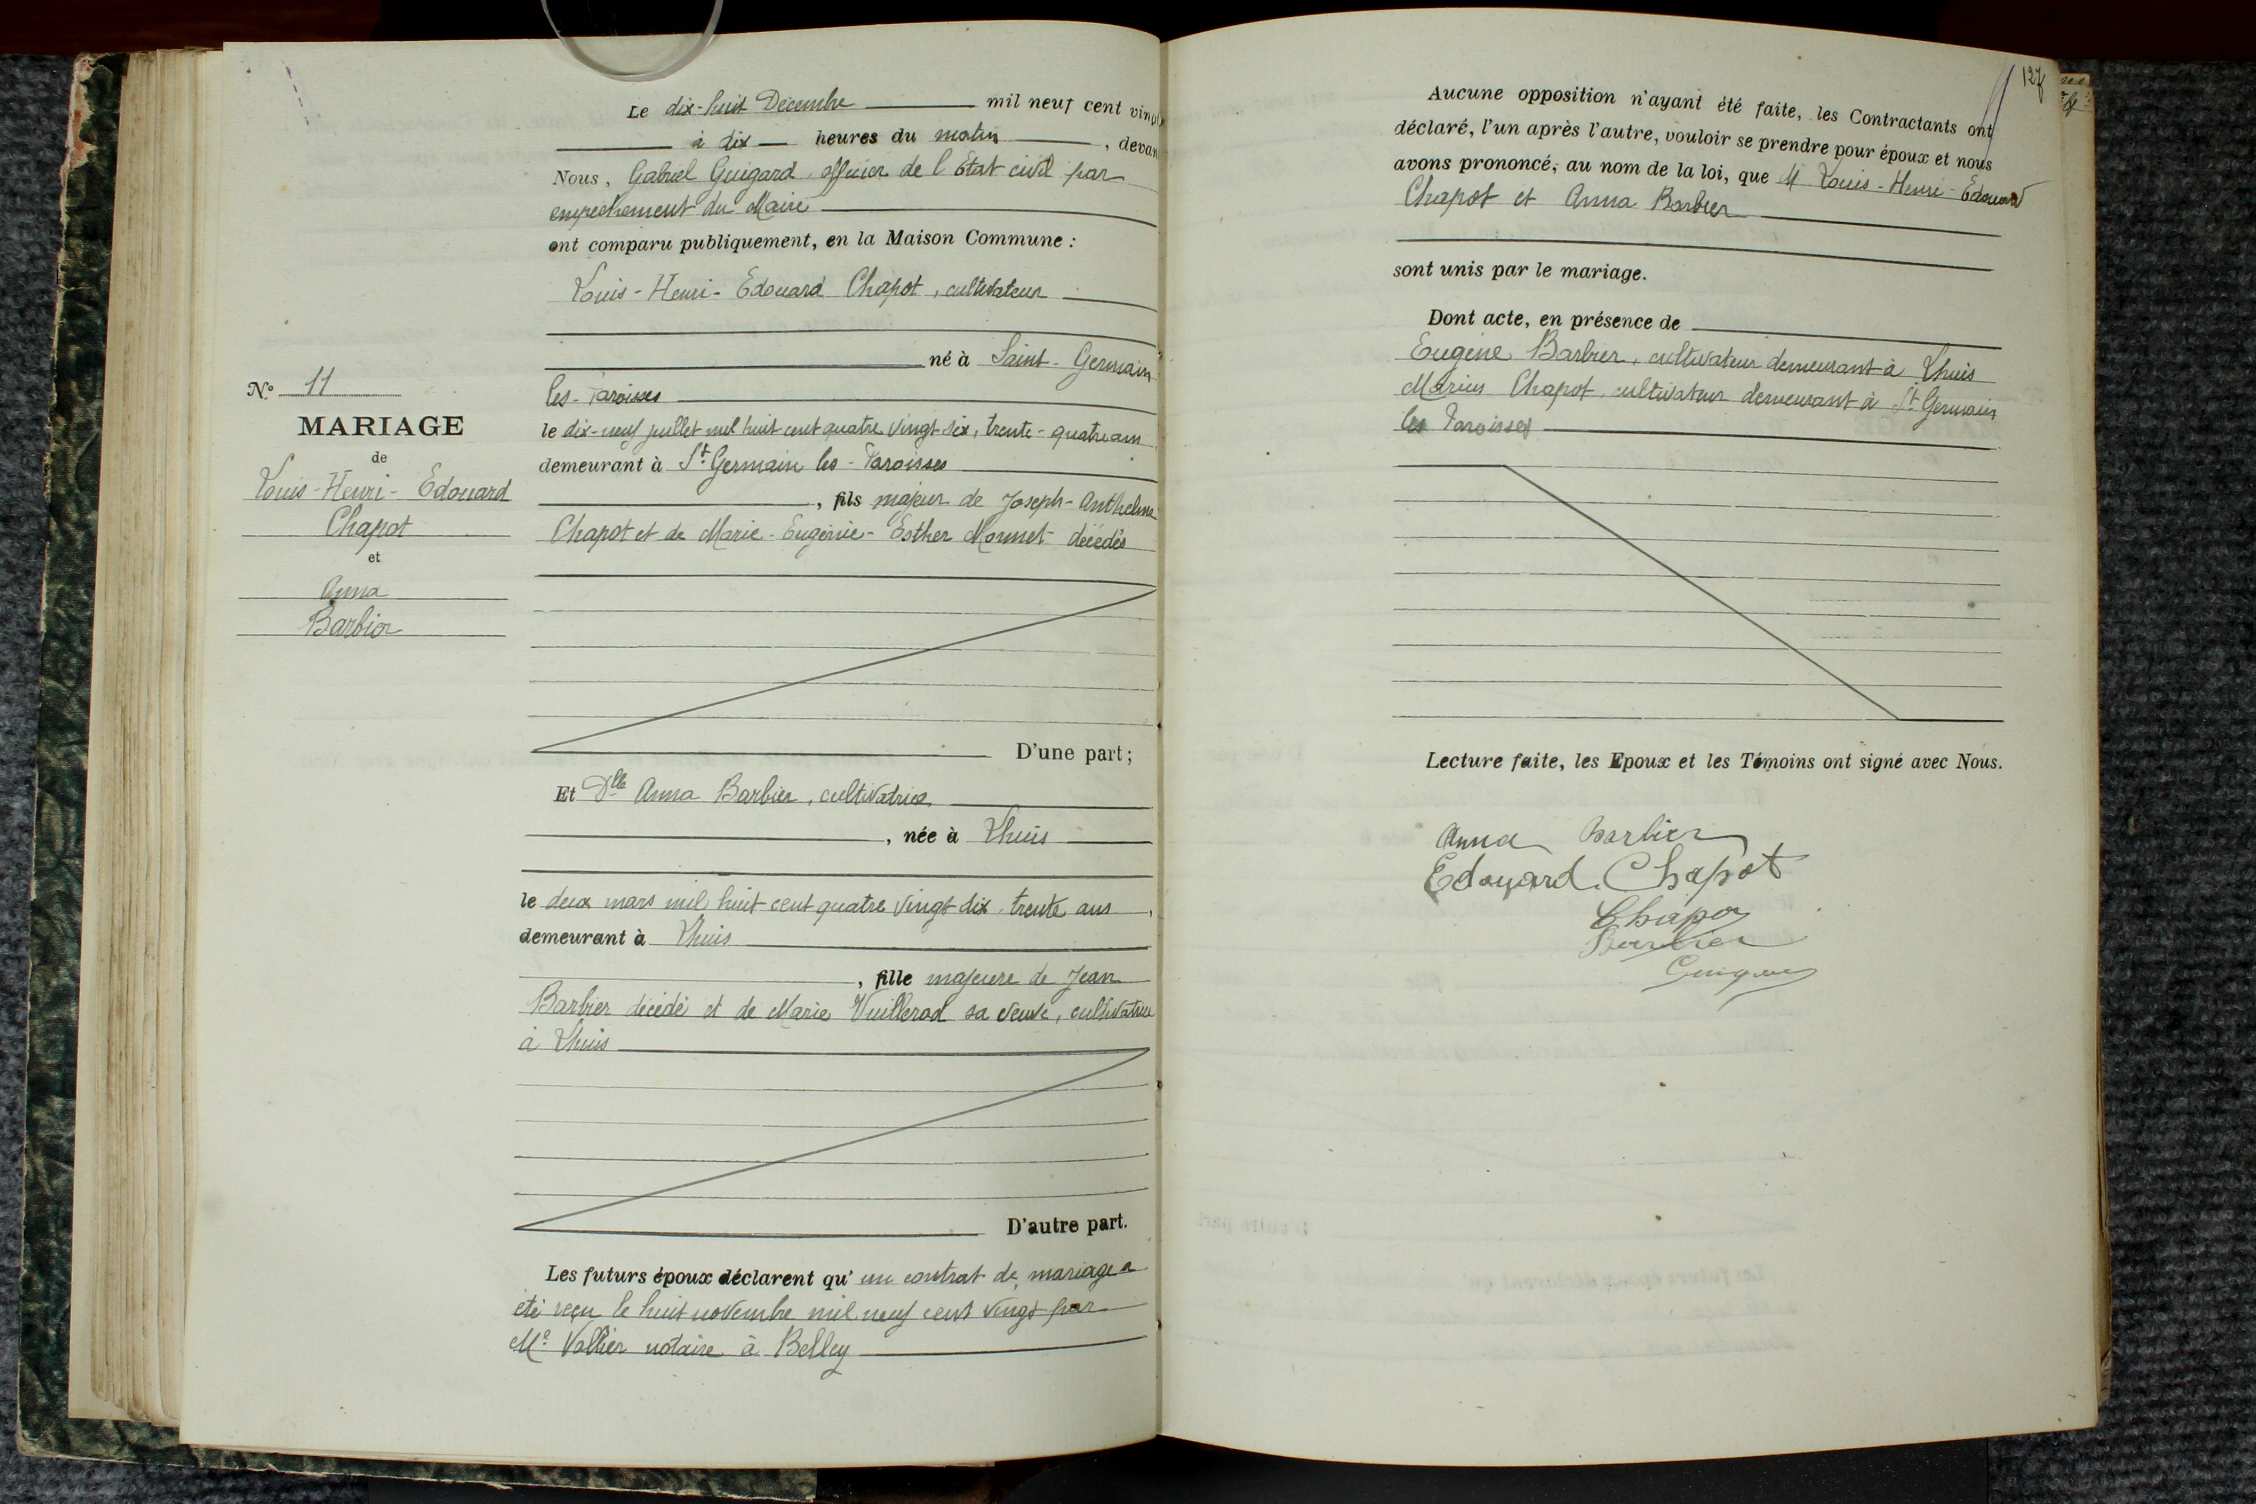 Le dix-huit Décembre mil neuf cent vingt
à dix heures du matin, devan
Nous, Gabriel Guigard officier de l'Etat civil par
empêchement du Maire
ont comparu publiquement, en la Maison Commune :
Louis-Henri-Edouard Chapot, cultivateur
né à Saint-Germain
les-Paroisses
le dix-neuf juillet mil huit cent quatre vingt-six, trente-quatre ans
demeurant à St Germain les-Paroisses
, fils majeur de Joseph-Anthelme
Chapot et de Marie-Eugénie-Esther Monnet décédés
D'une part ;
Et Dlle Anna Barbier, cultivatrice
, née à Lhuis
le deux mars mil huit cent quatre vingt dix, trente ans,
demeurant à Lhuis
, fille majeure de Jean
Barbier décédé et de Marie Vuillerod sa veuve, cultivatrice
à Lhuis
D'autre part.
Les futurs époux déclarent qu'un contrat de mariage a
été reçu le huit novembre mil neuf cent vingt par
Me Vallier notaire à Belley
No 11
MARIAGE
de
Louis-Henri-Edouard
Chapot
et
Anna
Barbier
127
Aucune opposition n'ayant été faite, les Contractants ont
déclaré, l'un après l'autre, vouloir se prendre pour époux et nous
avons prononcé, au nom de la loi, que M Louis-Henri-Edouard
Chapot et Anna Barbier
sont unis par le mariage.
Dont acte, en présence de
Eugène Barbier, cultivateur demeurant à Lhuis
Marius Chapot, cultivateur demeurant à St Germain
les Paroisses
Lecture faite, les Epoux et les Témoins ont signé avec Nous.
Anna Barbier
Edouard Chapot
Chapot
Barbier
Guigard